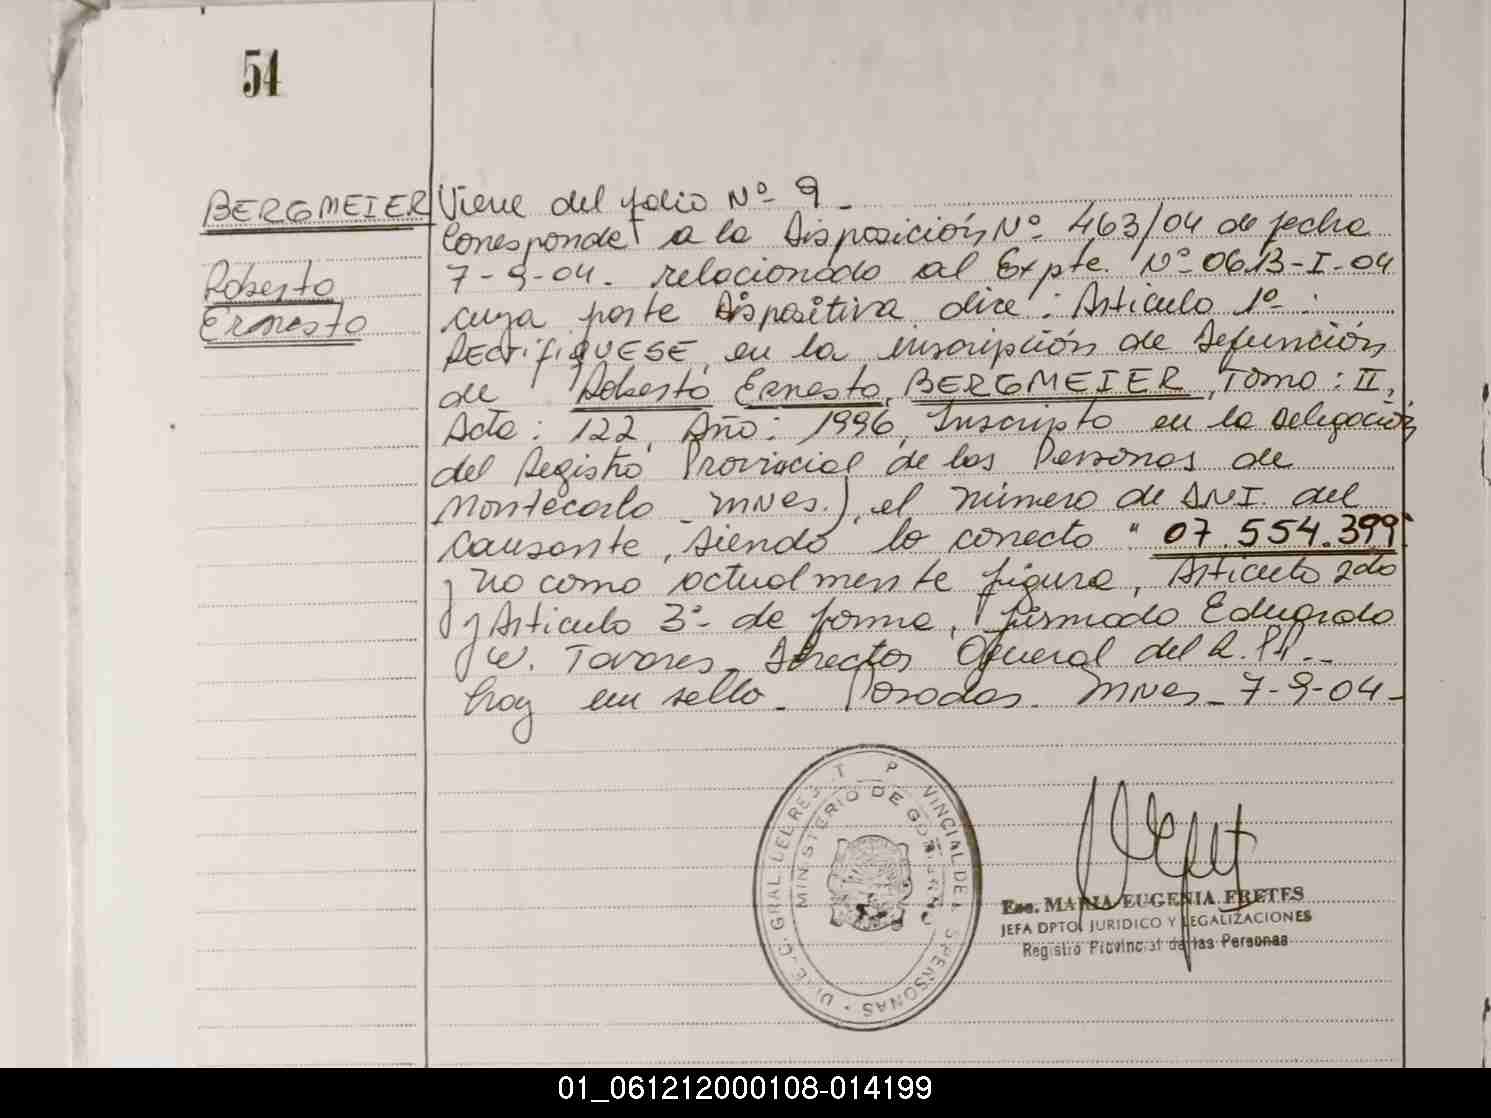 54
BERGMEIER
Roberto
Ernesto
Viene del folio Nº 9 -
Corresponde a la Disposición Nº 463/04 de fecha
7-9-04. relacionado al Expte. Nº 0613-I-04
cuya parte Dispositiva dice: Artículo 1º :
RECTIFIQUESE, en la inscripción de Defunción
de Roberto Ernesto, BERGMEIER, Tomo: II,
Acta: 122, Año: 1996, Inscripto en la Delegación
del Registro Provincial de las Personas de
Montecarlo - MNES.), el número de DNI. del
causante, siendo lo correcto "07.554.399"
y no como actualmente figura, Artículo 2do
y Artículo 3º de forma, firmado Eduardo
W. Tavares - Director General del R.P.P. -
hay un sello - Posadas. MNES - 7-9-04 -
DIREC. GRAL. DEL REG. T P VINCIAL DE L S PERSONAS
MINISTERIO DE GOBIERNO
Esc. MARIA EUGENIA FRETES
JEFA DPTO. JURIDICO Y LEGALIZACIONES
Registro Provincial de las Personas
01_061212000108-014199